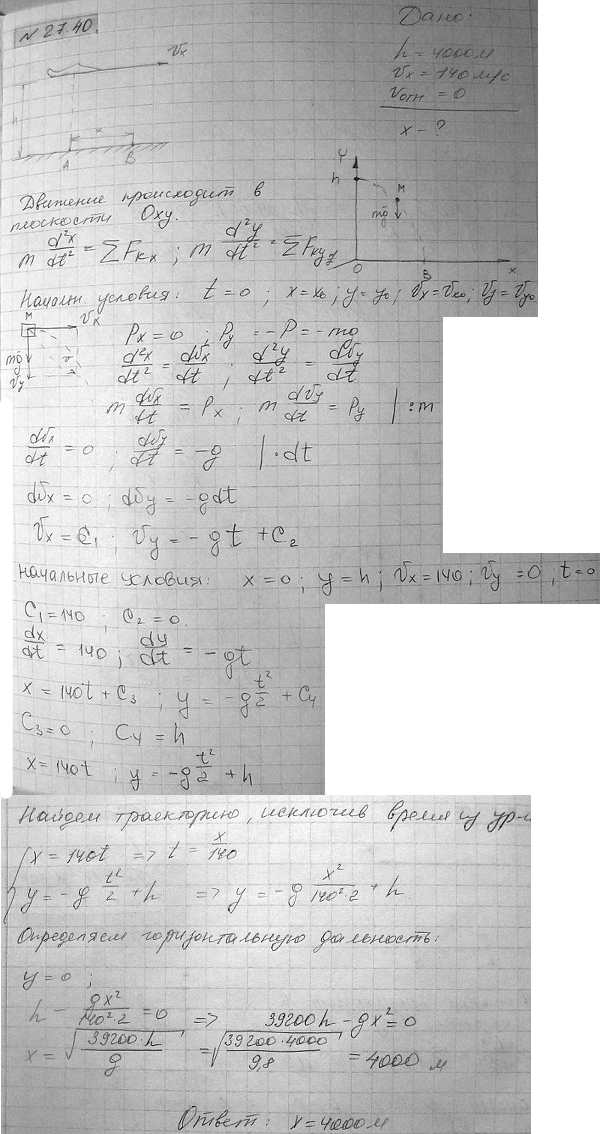 № 27.40.
Дано:
h = 4000м
Vx = 140 м/с
Vотн = 0
x - ?
Vx
x
A B
Y
h
M
mg
O B x
Движение происходит в
плоскости Oxy.
m d²x/dt² = ΣFкx ; m d²y/dt² = ΣFкy
Начальн условия: t = 0 ; x = x₀ ; y = y₀ ; Vx = Vx₀ ; Vy = Vy₀
M Vx
mg
Vy
Px = 0 ; Py = -P = -mg
d²x/dt² = dVx/dt ; d²y/dt² = dVy/dt
m dVx/dt = Px ; m dVy/dt = Py | :m
dVx/dt = 0 ; dVy/dt = -g | ·dt
dVx = 0 ; dVy = -gdt
Vx = C₁ ; Vy = -gt + C₂
начальные условия: x = 0 ; y = h ; Vx = 140 ; Vy = 0 , t = 0
C₁ = 140 ; C₂ = 0.
dx/dt = 140 ; dy/dt = -gt
x = 140t + C₃ ; y = -g t²/2 + C₄
C₃ = 0 ; C₄ = h
x = 140t ; y = -g t²/2 + h
Найдем траекторию, исключив время из ур-
x = 140t => t = x/140
y = -g t²/2 + h => y = -g x²/140²·2 + h
Определяем горизонтальную дальность:
y = 0 ;
h - gx²/140²·2 = 0 => 39200h - gx² = 0
x = √(39200·h/g) = √(39200·4000/9,8) = 4000 м
Ответ: x = 4000м